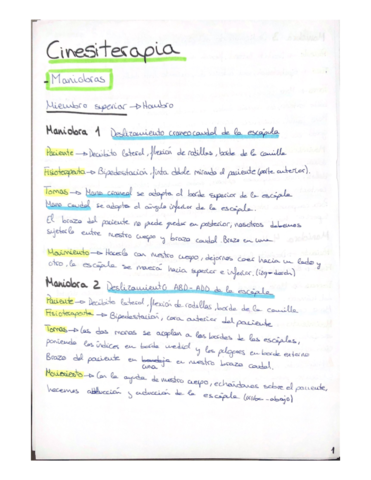 Cinesiterapia
- Maniobras
Miembro superior → Hombro
Maniobra 1 Deslizamiento craneocaudal de la escápula
Paciente → Decúbito lateral, flexión de rodillas, borde de la camilla
Fisioterapeuta → Bipedestación, finta doble mirando al paciente (parte anterior).
Tomas → Mano craneal se adapta al borde superior de la escápula
Mano caudal se adapta al ángulo inferior de la escápula.
El brazo del paciente no puede quedar en posterior, nosotros debemos
sujetarlo entre nuestro cuerpo y brazo caudal. Brazo en
Movimiento → Hacerlo con nuestro cuerpo, dejarnos caer hacia un lado y
otro, la escápula se moverá hacia superior e inferior.
Maniobra 2 Deslizamiento ABD-ADD de la escápula
Paciente → Decúbito lateral, flexión de rodillas, borde de la camilla
Fisioterapeuta → Bipedestación, cara anterior del paciente
Tomas → Las dos manos se acoplan a los bordes de las escápulas,
poniendo los índices en borde medial y los pulgares en borde externo
Brazo del paciente en nuestro brazo caudal.
Movimiento → Con la ayuda de nuestro cuerpo, echándonos sobre el paciente,
hacemos abducción y aducción de la escápula (arriba-abajo)
1